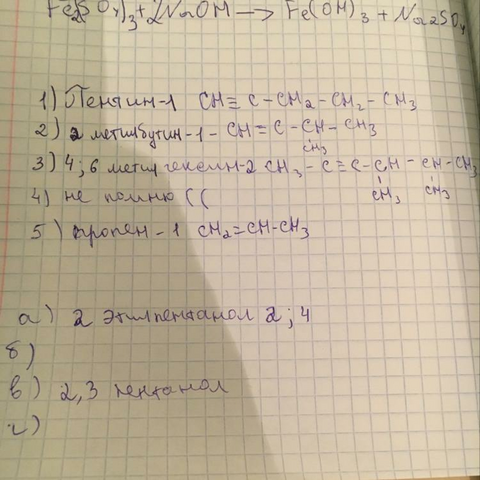 Fe2(SO4)3+2NaOH → Fe(OH)3 + Na2SO4
1) Пентин-1 CH≡C-CH2-CH2-CH3
2) 2 метилбутин-1- CH≡C-CH-CH3
CH3
3) 4;6 метил гексин-2 CH3-C≡C-CH-CH-CH3
CH3 CH3
4) не помню ((
5) пропен-1 CH2=CH-CH3
а) 2 этилпентанол 2;4
б)
в) 2,3 пентанол
г)